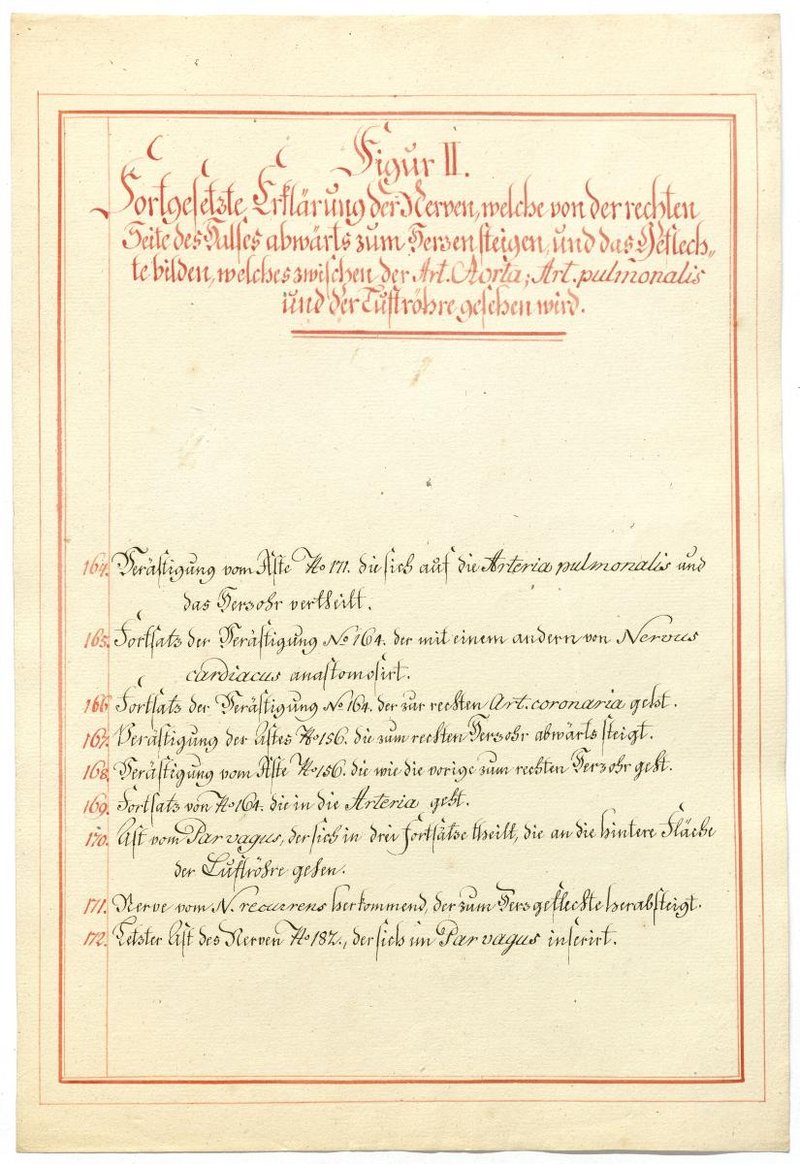 Figur II.
Fortgesetzte Erklärung der Nerven, welche von der rechten
Seite des Halses abwärts zum Herzen steigen, und das Geflech„
te bilden, welches zwischen der Art. Aorta; Art. pulmonalis
und der Luftröhre gesehen wird.
164. Verästigung vom Aste No 171. die sich auf die Arteria pulmonalis und
das Herzohr vertheilt.
165. Fortsatz der Verästigung No 164. der mit einem andern von Nervus
cardiacus anastomosirt.
166. Fortsatz der Verästigung No 164. der zur rechten Art. coronaria geht.
167. Verästigung der Astes No 156. die zum rechten Herzohr abwärts steigt.
168. Verästigung vom Aste No 156. die wie die vorige zum rechten Herzohr geht.
169. Fortsatz von No 164. die in die Arteria geht.
170. Ast vom Par vagus, der sich in drei Fortsätze theilt, die an die hintere Fläche
der Luftröhre gehen.
171. Nerve vom N. recurrens herkommend, der zum Herzgeflechte herabsteigt.
172. Letzter Ast des Nerven No 187., der sich im Par vagus inserirt.